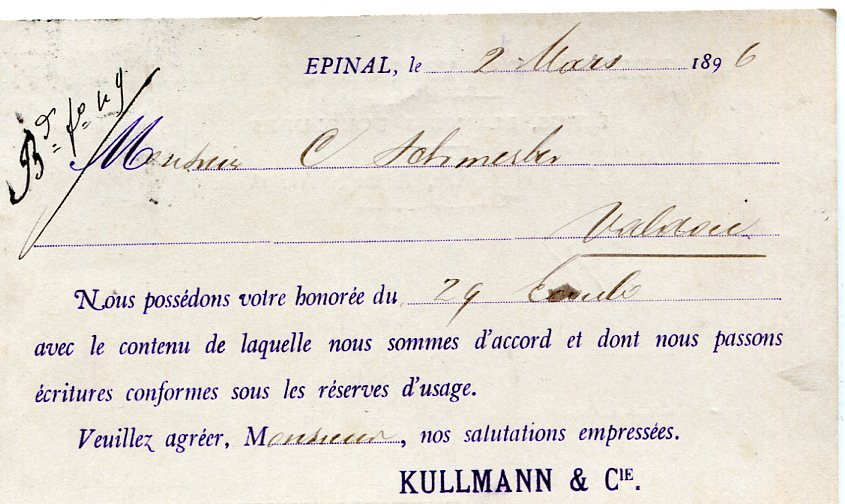 EPINAL, le 2 Mars 1896
Bd fo 49
Monsieur C Schmerber
Valdoie
Nous possédons votre honorée du 29 Écoulé
avec le contenu de laquelle nous sommes d'accord et dont nous passons
écritures conformes sous les réserves d'usage.
Veuillez agréer, Monsieur, nos salutations empressées.
KULLMANN & CIE.